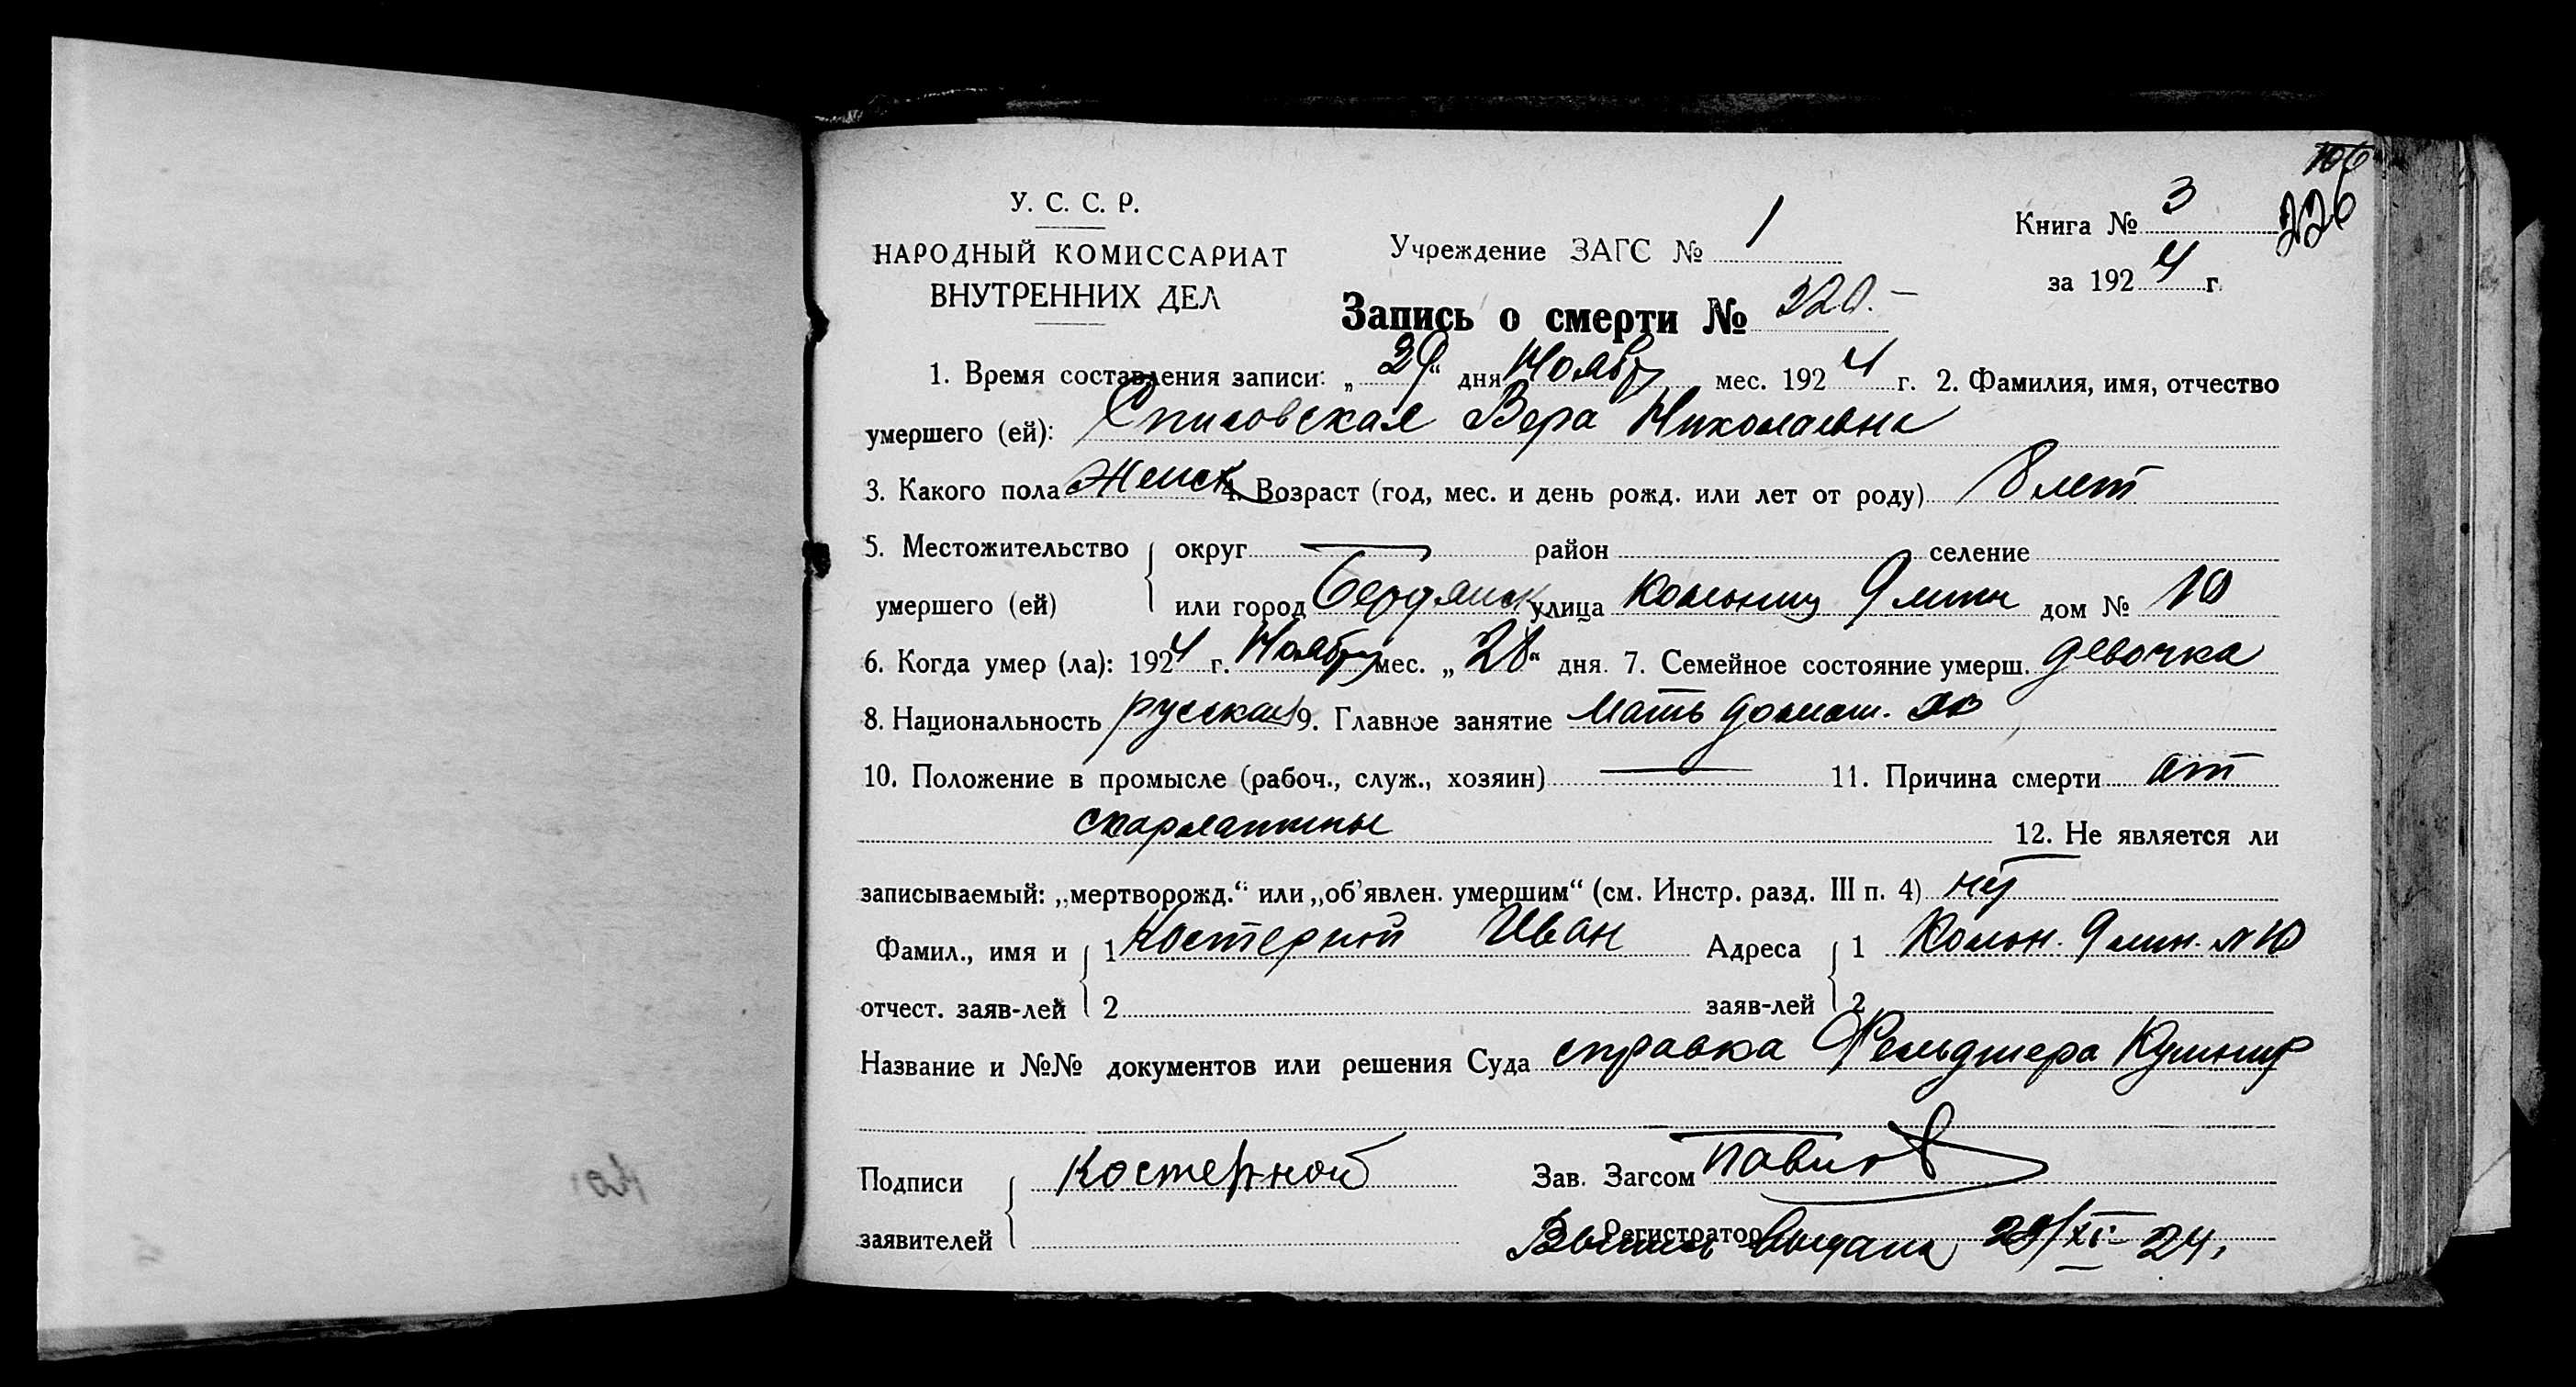 226
У. С. С. Р.
НАРОДНЫЙ КОМИССАРИАТ
ВНУТРЕННИХ ДЕЛ
Учреждение ЗАГС № 1
Книга № 3
за 1924 г.
Запись о смерти № 320.-
1. Время составления записи: „29“ дня Ноябр мес. 1924 г. 2. Фамилия, имя, отчество
умершего (ей): Вера Николаевна
3. Какого пола Женск 4. Возраст (год, мес. и день рожд. или лет от роду) 8 лет
5. Местожительство округ — район селение
умершего (ей) или город Бердянск улица Колония 9 лин дом № 10
6. Когда умер (ла): 1924 г. Ноябр мес. „28“ дня. 7. Семейное состояние умерш. девочка
8. Национальность русская 9. Главное занятие Мать домаш. хоз
10. Положение в промысле (рабоч., служ., хозяин) — 11. Причина смерти от
скарлатины 12. Не является ли
записываемый: „мертворожд.“ или „об’явлен. умершим“ (см. Инстр. разд. III п. 4) нет
Фамил., имя и 1 Костерной Иван Адреса 1 Колон. 9 лин. № 10
отчест. заяв-лей 2 заяв-лей 2
Название и №№ документов или решения Суда справка Фельдшера Кушнир
Подписи Костерной Зав. Загсом
заявителей Регистратор Выпись выдана 29/XI-24.